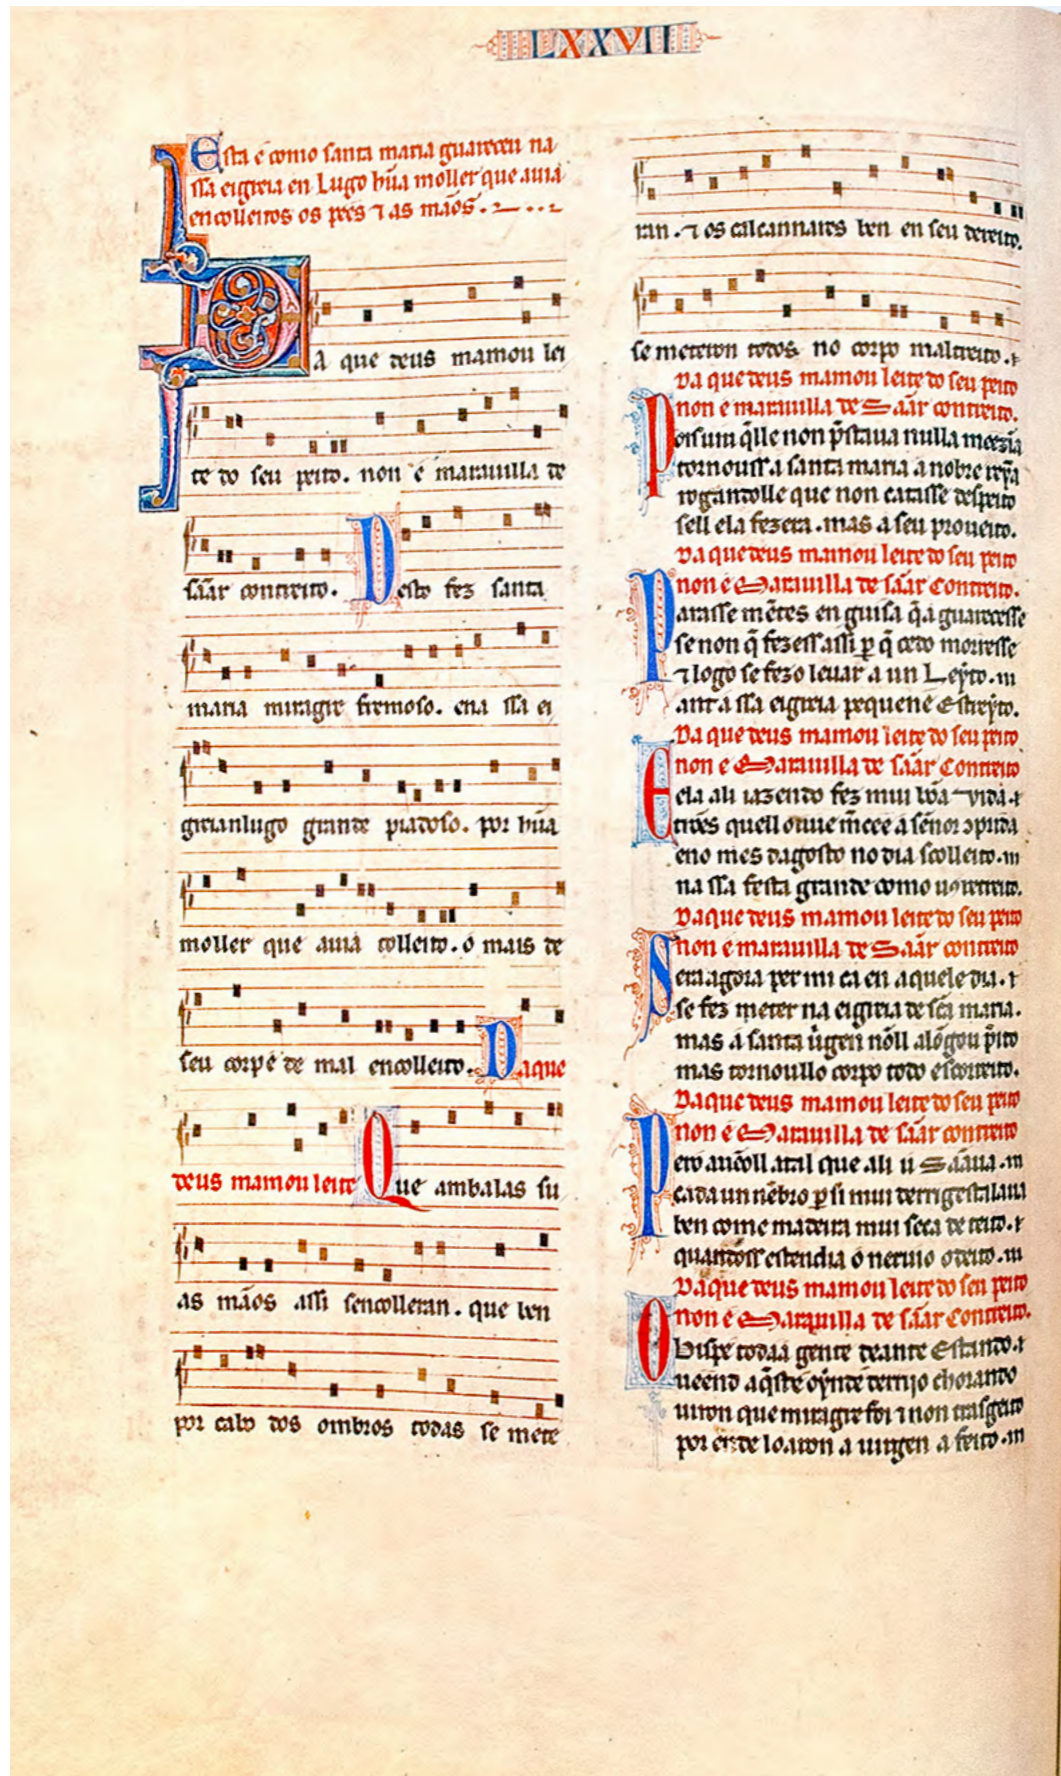 LXXVII
Esta é como santa maria guareceu na
ssa eigreia en Lugo hũa moller que auia
encolleitos os pees ⁊ as mãos.
DA que deus mamou lei
te do seu peito. non é marauilla de
sãar contreito. Desto fez santa
maria miragre fremoso. ena ssa ei
greianlugo grande piadoso. por hũa
moller que auia tolleito. o mais de
seu corpe de mal encolleito. Daque
deus mamou leite Que ambalas su
as mãos assi sencolleran. que ben
por cabo dos ombros todas se mete
ran. ⁊ os calcannares ben en seu dereito.
se meteron todos no corpo maltreito. ⁊
Da que deus mamou leite do seu peito
non é marauilla de Sãar contreito.
Poisum q̃lle non p̃staua nulla meezỹa
tornouss a santa maria a nobre reỹa
rogandolle que non catasse despeito
sell ela fezera. mas a seu proueito.
Da que deus mamou leite do seu peito
non é Marauilla de sãar Contreito.
Parasse mẽtes en guisa q̃a guarecesse
se non q̃ fezess assi per q̃ cedo morresse
⁊ logo se fezo leuar a un Leyto. m
ant a ssa eigreia pequene Estreyto.
Da que deus mamou leite do seu peito
non é Marauilla de sãar Contreito
E ela ali iazendo fez mui bõa uida. ⁊
trões quell ouue mercee a señor conprida
eno mes dagosto no dia scolleito. m
na ssa festa grande como uos retreito.
Da que deus mamou leite do seu peito
non é marauilla de Sãar contreito
Sera agora per mi ca en aquele dia. ⁊
se fez meter na eigreia de sc̃a maria.
mas a santa uirgen nõll alõgou preito
mas tornoullo corpo todo escorreito.
Da que deus mamou leite do seu peito
non é Marauilla de sãar contreito
Pero auẽoll atal que ali u Sãaua. m
cada un nẽbro per si mui derrigestalaua
ben come madeira mui seca de teito. ⁊
quandoss estendia o neruio odeito. m
Da que deus mamou leite do seu peito
non é Marauilla de sãar Contreito.
O bispe todaa gente deante Estando. ⁊
ueend aq̃ste oỹnde derrijo chorando
uiron que miragre foi ⁊ non trasgeito
por ende loaron a uirgen a feito. m